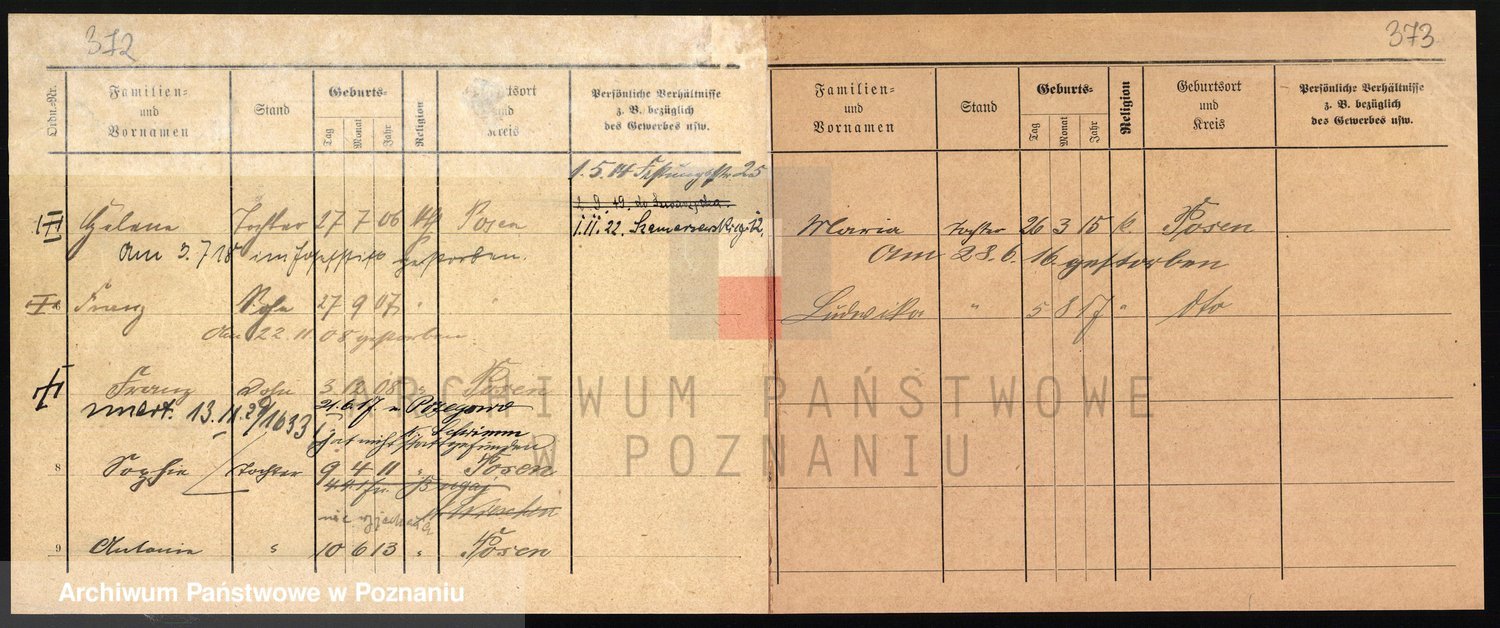 372
Ordn.-Nr.
Familien- und Vornamen
Stand
Geburts-
Tag Monat Jahr
Religion
Geburtsort und Kreis
Persönliche Verhältnisse z. B. bezüglich des Gewerbes usw.
1.5.14 Festungsstr 25
1.11.22.
Helena Tochter 27 7 06 kath Posen
Am 3.7 18 im Josefstift gestorben.
Franz Sohn 27 9 07 " "
Am 22.11.08 gestorben.
Franz Sohn 3 12 08 " Posen
21.6.17 n
hat nicht stattgefunden
8 Sophie Tochter 9 4 11 " Posen
Wreschen
nie wyjechała
9 Antonie " 10 6 13 " Posen
373
Familien- und Vornamen
Stand
Geburts-
Tag Monat Jahr
Religion
Geburtsort und Kreis
Persönliche Verhältnisse z. B. bezüglich des Gewerbes usw.
Maria Tochter 26 3 15 k. Posen
Am 28.6.16 gestorben
Ludwika " 5 8 17 " dto
ARCHIWUM PAŃSTWOWE
W POZNANIU
Archiwum Państwowe w Poznaniu